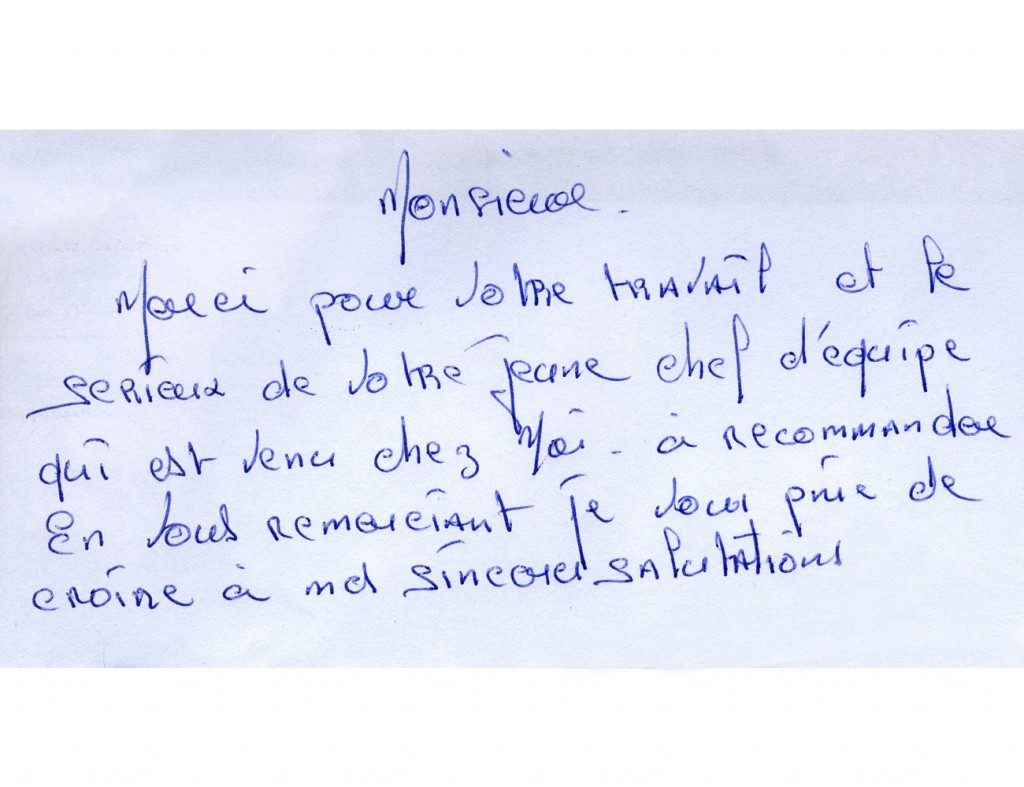 Monsieur.
Merci pour votre travail et le
serieux de votre jeune chef d'équipe
qui est venu chez Moi - à recommander
En vous remerciant je vous prie de
croire à mes sincères salutations